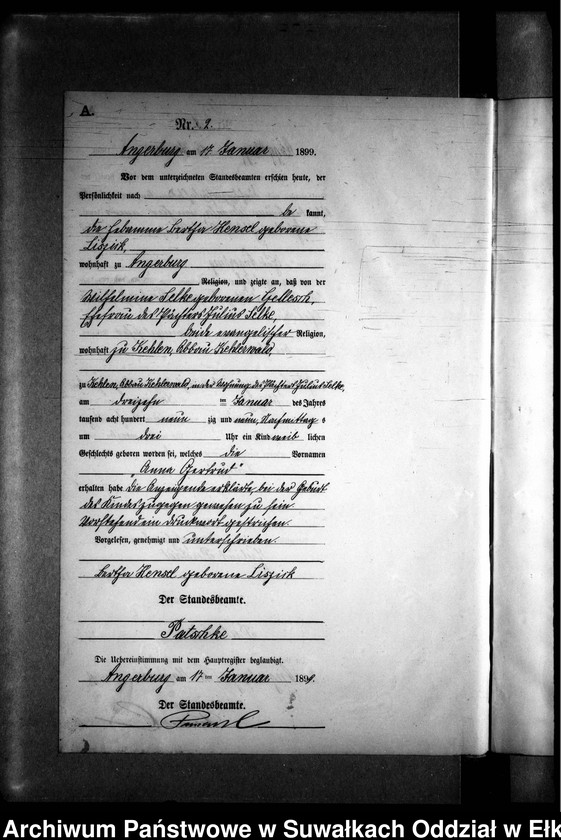 A.
Nr. 2.
Angerburg am 17 Januar 1899.
Vor dem unterzeichneten Standesbeamten erschien heute, der
Persönlichkeit nach
be kannt,
die Hebamme Bertha Hensel geborene
Liszick,
wohnhaft zu Angerburg
Religion, und zeigte an, daß von der
Wilhelmine Lelke geborenen
Ehefrau des Pächters Julius Lelke,
Beide evangelischer Religion,
wohnhaft zu Kehlen, Abbau Kehlerwald,
zu Kehlen, Abbau Kehlerwald, in der Wohnung des Pächters Julius Lelke,
am dreizehn ten Januar des Jahres
tausend acht hundert neun zig und neun, Nachmittag s
um drei Uhr ein Kind weib lichen
Geschlechts geboren worden sei, welches die Vornamen
„Anna Gertrud"
erhalten habe die Anzeigende erklärte, bei der Geburt
des Kindes zugegen gewesen zu sein.
Vorstehend ein Druckwort gestrichen.
Vorgelesen, genehmigt und unterschrieben.
Bertha Hensel geborene Liszick
Der Standesbeamte.
Patschke
Die Uebereinstimmung mit dem Hauptregister beglaubigt.
Angerburg am 17 ten Januar 1899.
Der Standesbeamte.
Archiwum Państwowe w Suwałkach Oddział w Ełk